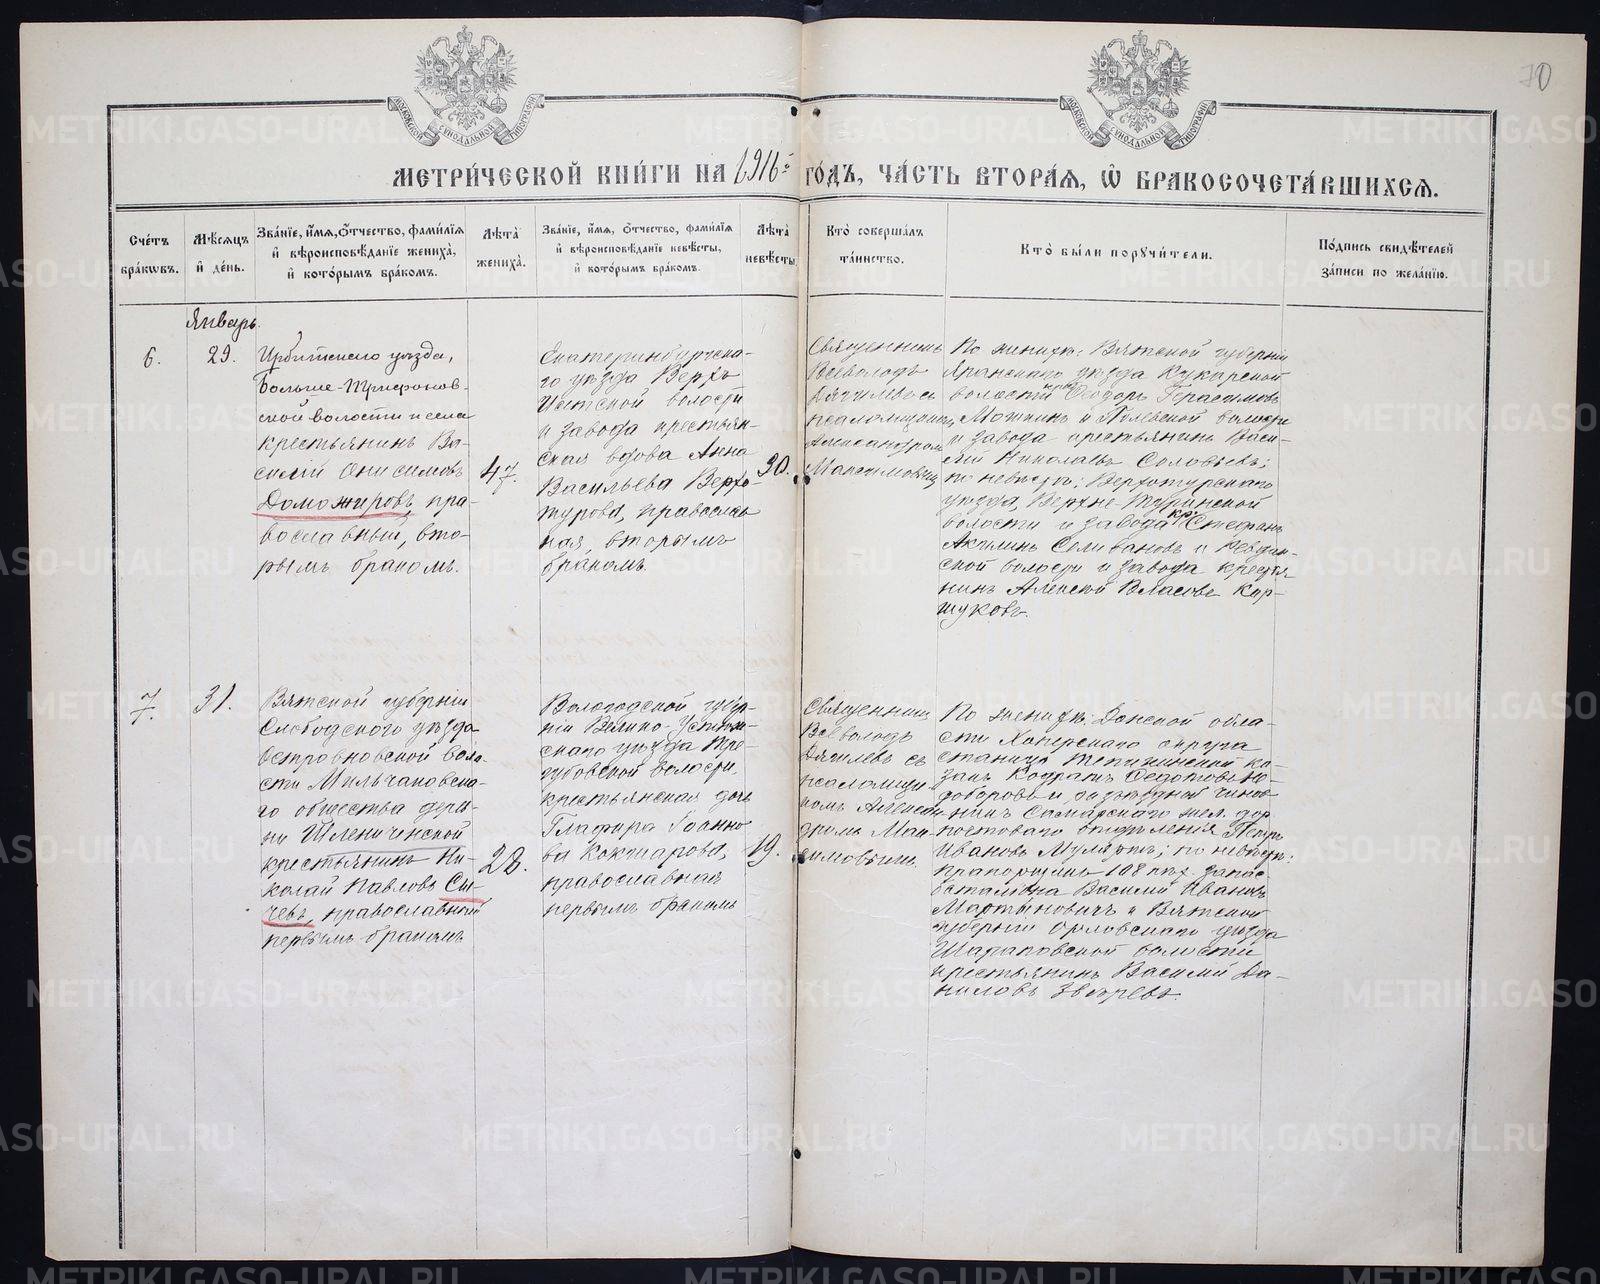 70
МОСКОВСКОЙ СѴНОДАЛЬНОЙ ТИПОГРАФІИ
МОСКОВСКОЙ СѴНОДАЛЬНОЙ ТИПОГРАФІИ
МЕТРИ́ЧЕСКОЙ КНИ́ГИ НА 1916й ГО́ДЪ, ЧА́СТЬ ВТОРА́Я, Ѡ҆ БРАКОСОЧЕТА́ВШИХСЯ.
Сче́тъ
бра́кωвъ.
Мѣ́сяцъ
и҆ де́нь.
Зва́нїе, и҆́мя, ѻ҆́тчество, фами́лїя
и҆ вѣроисповѣ́данїе жениха̀,
и҆ кото́рымъ бра́комъ.
Лѣта̀
жениха̀.
Зва́нїе, и҆́мя, ѻ҆́тчество, фами́лїя
и҆ вѣроисповѣ́данїе невѣ́сты,
и҆ кото́рымъ бра́комъ.
Лѣта̀
невѣ́сты.
Кто̀ соверша́лъ
та́инство.
Кто̀ бы́ли порꙋчи́тели.
По́дпись свидѣ́телей
за́писи по жела́нїю.
Январь.
6.
29.
Ирбитскаго уѣзда,
Больше-Трифонов-
ской волости и села
крестьянинъ Ва-
силій Онисимовъ
Доможировъ, пра-
вославный, вто-
рымъ бракомъ.
47.
Екатеринбургска-
го уѣзда Верхъ
Исетской волости
и завода крестьян-
ская вдова Анна
Васильева Верхо-
турова, православ
ная, вторымъ
бракомъ.
30.
Священникъ
Всеволодъ
съ
псаломщикомъ
Александромъ
Максимовымъ
По женихѣ: Вятской губерніи
Яранскаго уѣзда Кукарской
волости Ѳеодоръ Герасимовъ
Мошкинъ и Полевской волости
и завода крестьянинъ Васи-
лій Николаевъ Соловьевъ;
по невѣстѣ: Верхотурскаго
уѣзда, Верхне-Туринской
волости и завода кр. Стефанъ
Акиминъ Селивановъ и Ревдин-
ской волости и завода крестья-
нинъ Алексѣй Власовъ Кар-
шуковъ.
7.
31.
Вятской губерніи
Слободского уѣзда
Островновской воло-
сти Мильчаковска-
го общества дерев-
ни Шленичинской
крестьянинъ Ни-
колай Павловъ Сы-
чевъ, православный
первымъ бракомъ
28.
Вологодской губер-
ніи Велико-Устюж-
скаго уѣзда Тре-
губовской волости,
крестьянская дочь
Глафира Іоанно-
ва Кокшарова,
православная
первымъ бракомъ
19.
Священникъ
Всеволодъ
съ
псаломщи-
комъ Алексан-
дромъ Мак-
симовымъ.
По женихѣ: Донской обла-
сти Хоперскаго округа
станицы Тепикинской ка-
закъ Кодратъ Ѳедотовъ
и разъѣздной чинов
никъ Самарскаго жел. дор
почтоваго отдѣленія Петръ
Ивановъ; по невѣстѣ:
прапорщикъ 108 пѣх. запас
баталіона Василій Иванов
Мартыновичъ и Вятской
губерніи Орловскаго уѣзда
Шараповской волости
крестьянинъ Василій Да-
ниловъ Звѣревъ.